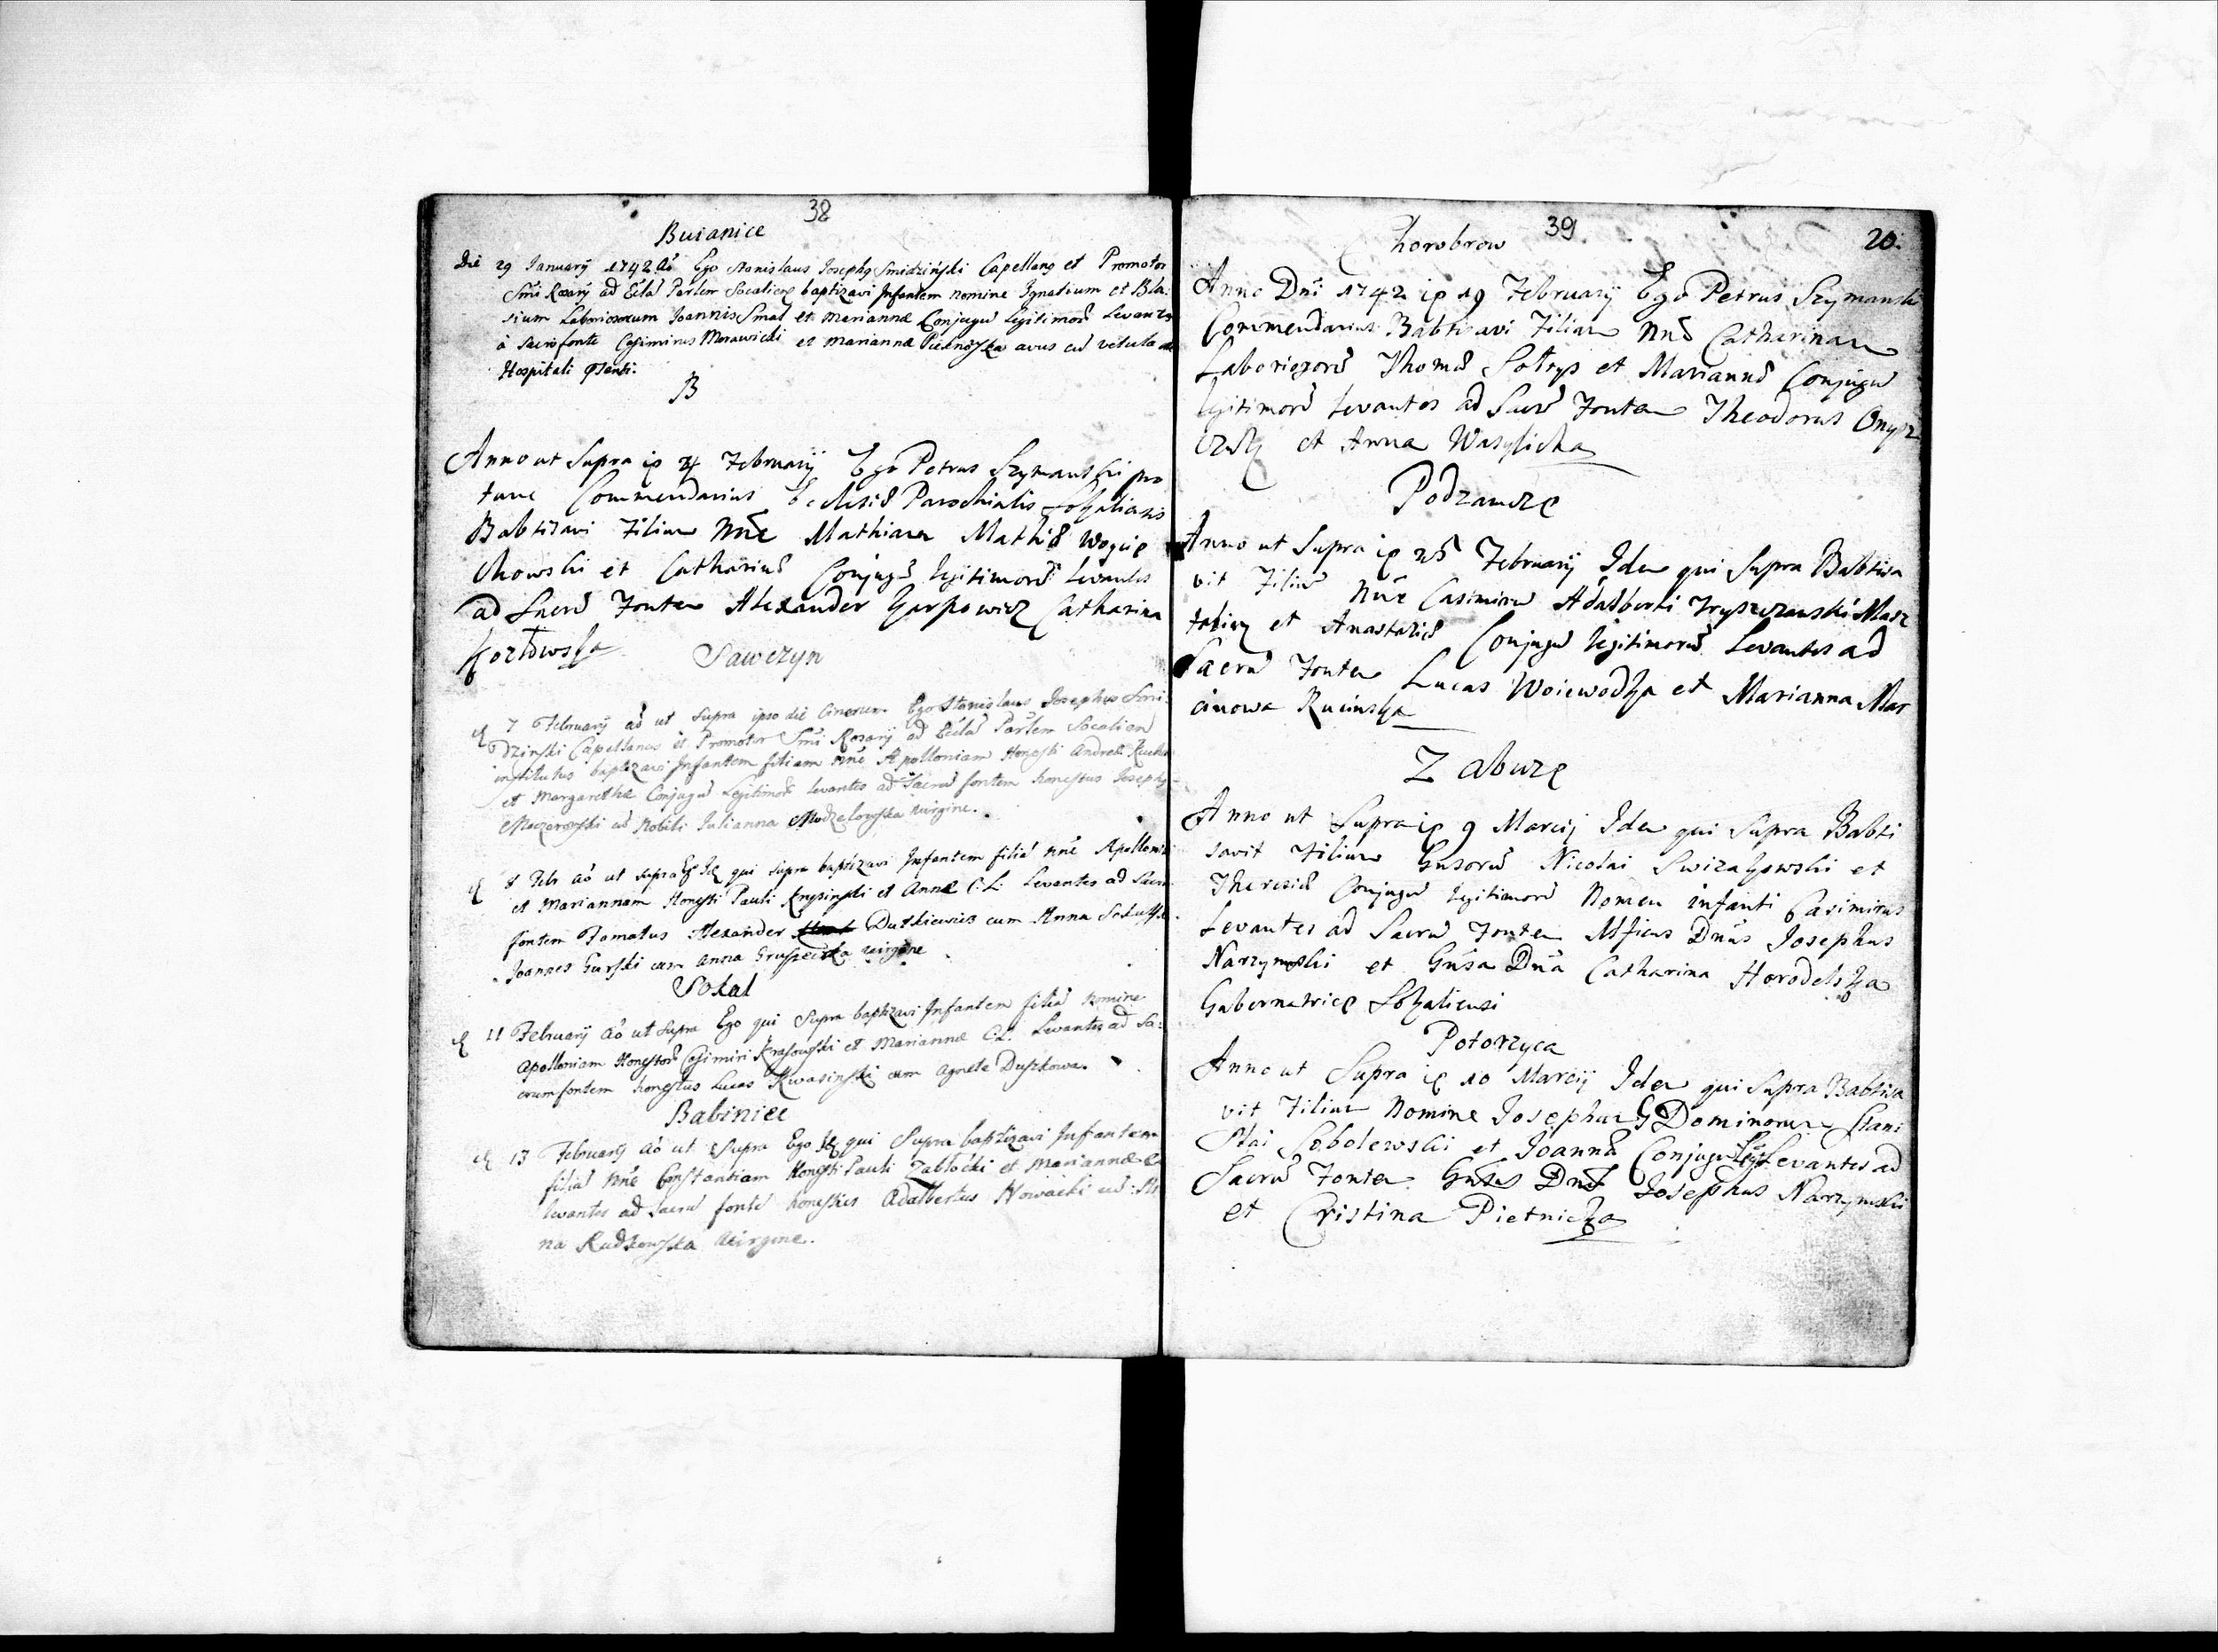 38
Buianice
Die 29 Januarÿ 1742 Aõ Ego Stanislaus Josephg Smidziński Capellang et Promotor
Smi Rosarÿ ad Ecla Parlem Socalien baptizavi Infantem nomine Ignatium et Bla:
sium Laboriosorum Joannis Smal et Mariannæ Conjugu Legitimoru Levantes
à Sacro fonte Casimirus Morawicki et Marianna avus cu vetula de
Hospitali
B
Anno ut Supra ip 4 February Ego Petrus Szymanski pro
tunc Commendarius Ecclesiæ Parochialis Sokaliensis
Babtisavi Filium Nne Mathiam Mathiæ
chowski et Catharinæ Conjugu legitimoru levantes
ad Sacru Fontem Alexander Harpowicz Catharina
Kozłowska
Sawczyn
7 February aõ ut supra ipso die Cinerum Ego Stanislaus Josephus Smi:
dzinski Capellanus et Promotor Smi Rosarÿ ad Ecla Parlem Socalien
institutus baptizavi Infantem filiam nne Apolloniam Honesti Andreæ
et Margarethæ Conjugu Legitimoru levantes ad Sacru fontem honestus Josephg
cu Nobili Julianna Modzelowska virgine.
8 Feb aõ ut supra Ego Id qui supra baptizavi Infantem filia nne Apollonia
et Mariannam Honesti Pauli Krysinski et Annæ C: L: Levantes ad Sacru
fontem Famatus Alexander Dutkiewicz cum Anna
Joannes Gurski cum Anna Gruszecka virgine
Sokal
11 February Aõ ut supra Ego qui supra baptizavi Infantem filia nomine
Apolloniam Honestoru Casimiri Krasowski et Mariannæ C: L: Levantes ad Sa:
crum fontem honestus Lucas Kwasinski cum Agneta Duszkowa.
Babiniec
13 February aõ ut Supra Ego Id qui Supra baptizavi Infantem
filia nne Constantiam Honesti Pauli Zabłocki et Mariannæ C
levantes ad Sacru fonte honestus Adalbertus Nowacki cu
na Rudkowska virgine.
39
20.
Chorobrow
Anno Dni 1742 ip 19 February Ego Petrus Szymanski
Commendarius Babtisavi Filiam Nne Catharinam
Laboriosoru Thomæ Soltys et Mariannæ Conjugu
legitimoru levantes ad Sacru Fontem Theodorus Onysz
czuk et Anna Wasylicha
Podzamcze
Anno ut Supra ip 25 February Idem qui Supra Babtisa
vit Filiu Nne Casimiru Adalberti Tryszczanski Masz
talirz et Anastasiæ Conjugu legitimoru Levantes ad
Sacru Fontem Lucas Woiewodka et Marianna Mar
cinowa Rucinska
Zabuze
Anno ut Supra ip 9 Marcij Idem qui Supra Babti
savit Filium Gnsoru Nicolai Swirakowski et
Theresiæ Conjugu legitimoru Nomen infanti Casimirus
Levantes ad Sacru Fontem Mficus Dnus Josephus
Narzymski et Gnsa Dna Catharina Horodelska
Gubernatrice Sokaliensi
Potorzyca
Anno ut Supra ip 10 Marcij Idem qui Supra Babtisa
vit Filium Nomine Josephum G Dominorum Stani
slai Sobolewski et Joannæ Conjugu Leg: Levantes ad
Sacru Fontem Gnsus Dnus Josephus Narzymski
et Cristina Pietnicka